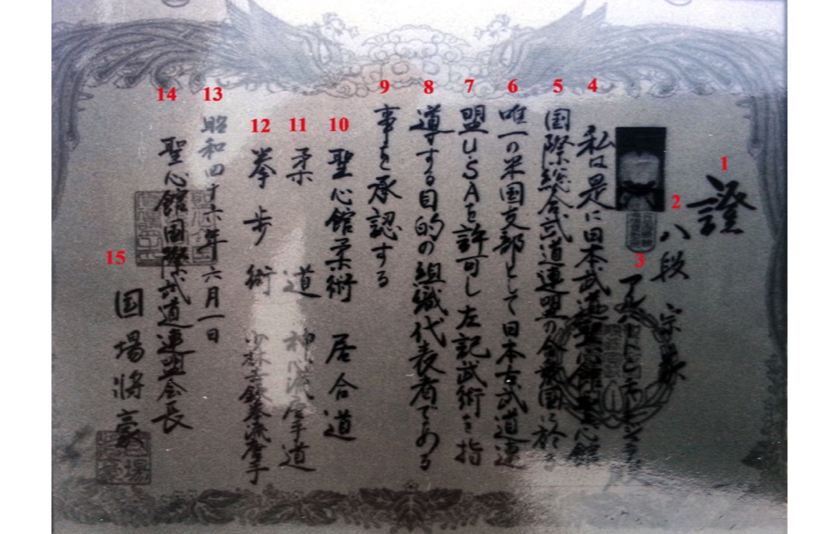 1
證
2
八段 宗家
3
殿
4
私は是に日本武道聖心館聖心館
5
国際総合武道連盟の合衆国に於る
6
唯一の米国支部として日本古武道連
7
盟U.S.Aを許可し左記武術を指
8
導する目的の組織代表者である
9
事を承認する
10
聖心館柔術 居合道
11
柔道 神心流拳道
12
拳歩術 少林
13
昭和四十六年六月一日
14
聖心館国際武道連盟会長
15
国場将豪